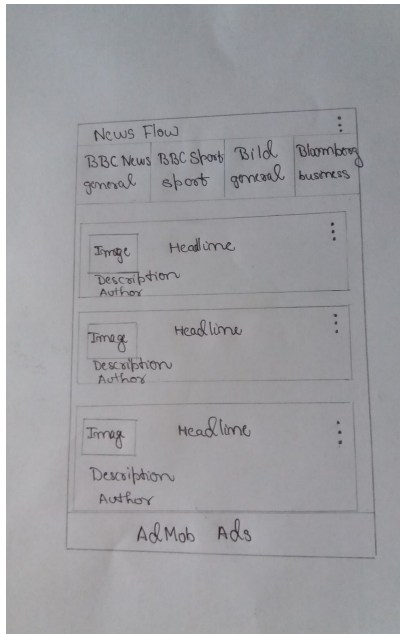 News Flow
BBC News BBC Sport Bild Bloomberg
general sport general business
Image Headline
Description
Author
Image Headline
Description
Author
Image Headline
Description
Author
AdMob Ads